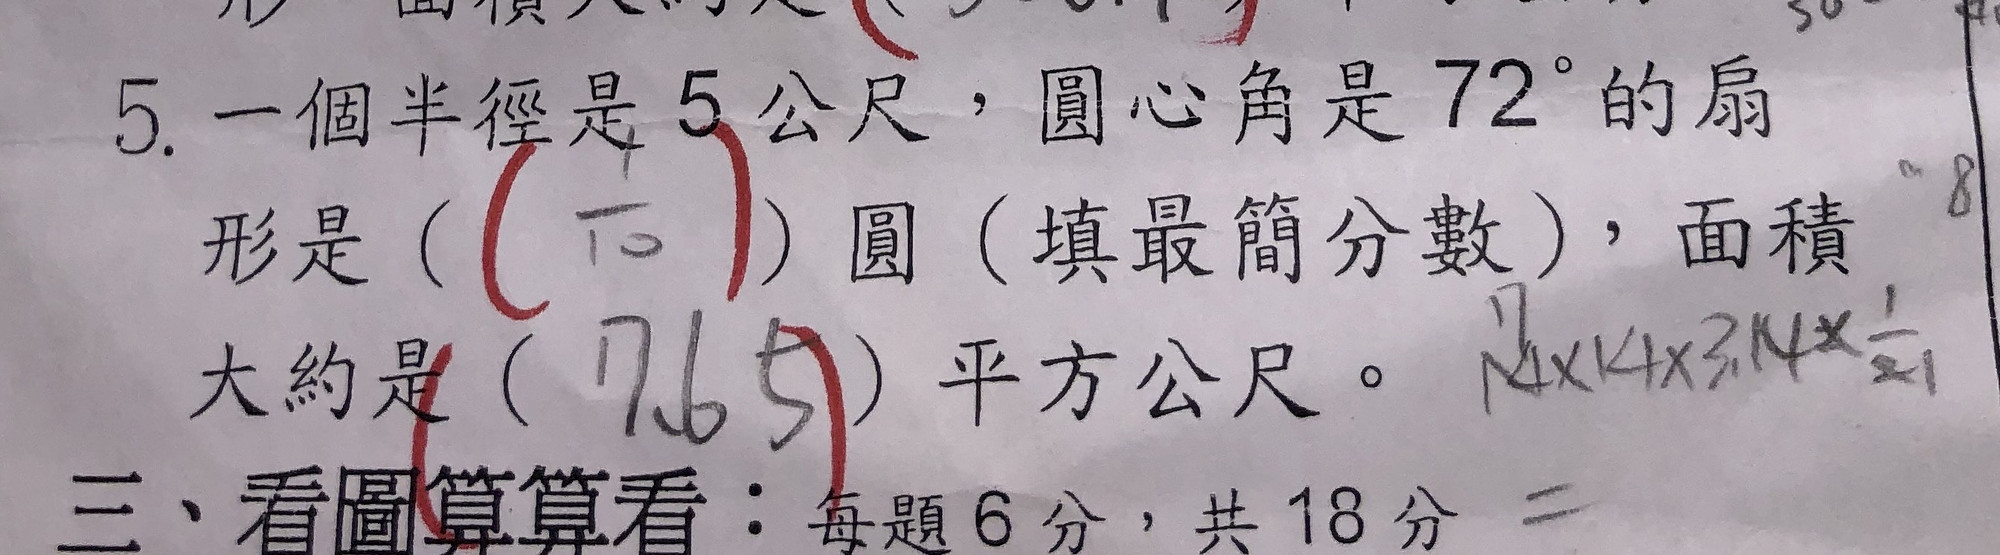 形 面積大約是(
5. 一個半徑是 5 公尺，圓心角是 72° 的扇
形是( 1/10 )圓(填最簡分數)，面積 8
大約是( 17.65 )平方公尺。 14×14×3.14×1/2
三、看圖算算看：每題 6 分，共 18 分 =